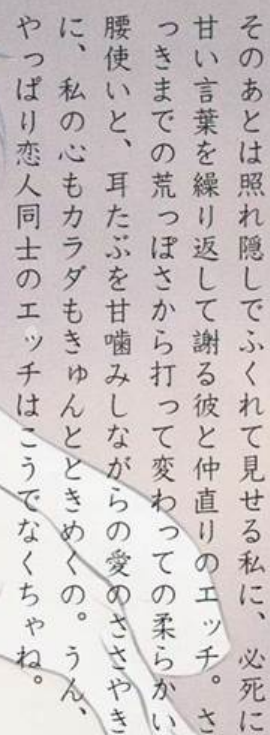 そのあとは照れ隠しでふくれて見せる私に、必死に
甘い言葉を繰り返して謝る彼と仲直りのエッチ。さ
っきまでの荒っぽさから打って変わっての柔らかい
腰使いと、耳たぶを甘噛みしながらの愛のささやき
に、私の心もカラダもきゅんとときめくの。うん、
やっぱり恋人同士のエッチはこうでなくちゃね。